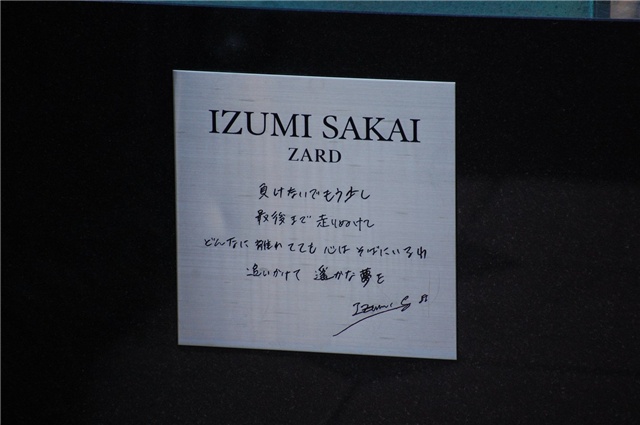 IZUMI SAKAI
ZARD
負けないでもう少し
最後まで 走りぬけて
どんなに 離れてても 心は そばにいるわ
追いかけて 遥かな夢を
Izumi S